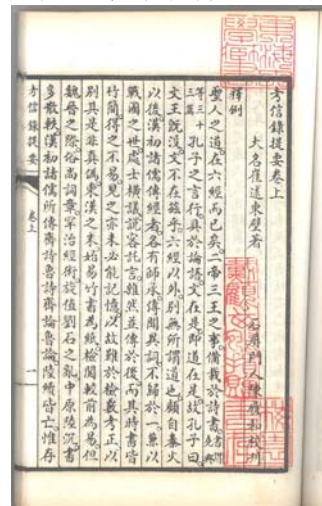 考信錄提要卷上
大名崔述東壁著
石屏門人陳履和校刊
釋例
聖人之道在六經而已矣二帝三王之事備載於詩書
孔子之言行具於論語文在是即道在是故孔子曰
文王既沒文不在茲乎六經以外別無所謂道也顧自秦火
以後漢初諸儒傳經者各有師承傳聞異詞不歸於一兼以
戰國之世處士橫議說客託言雜然並傳於後而其時書皆
竹簡得之不易見之亦未必能記憶以故難於檢覈考正以
別其是非真偽東漢之末始易竹書為紙檢閱較前為易但
魏晉之際俗尚詞章罕治經術旋值劉石之亂中原陸沉書
多散軼漢初諸儒所傳齊詩魯詩齊論魯論陸續皆亡惟存
考信錄提要
卷上
一